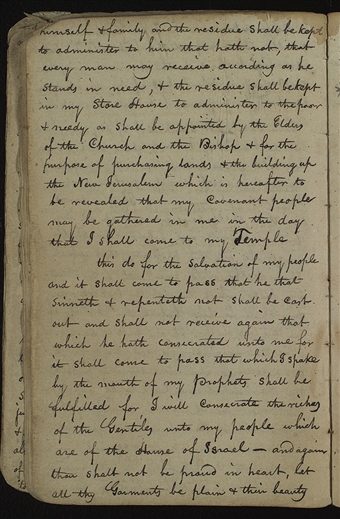 himself & family, and the residue shall be kept
to administer to him that hath not, that
every man may receive according as he
stands in need, & the residue shall be kept
in my Store House to administer to the poor
& needy as shall be appointed by the Elders
of the Church and the Bishop & for the
purpose of purchasing lands & the building up
the New Jerusalem which is hereafter to
be revealed that my Covenant people
may be gathered in me in the day
that I shall come to my Temple
this do for the salvation of my people
and it shall come to pass that he that
sinneth & repenteth not shall be cast
out and shall not receive again that
which he hath consecrated unto me for
it shall come to pass that which I spake
by the mouth of my Prophets shall be
fulfilled for I will consecrate the riches
of the Gentiles unto my people which
are of the House of Israel — and again
thou shalt not be proud in heart, let
all thy Garments be plain & their beauty